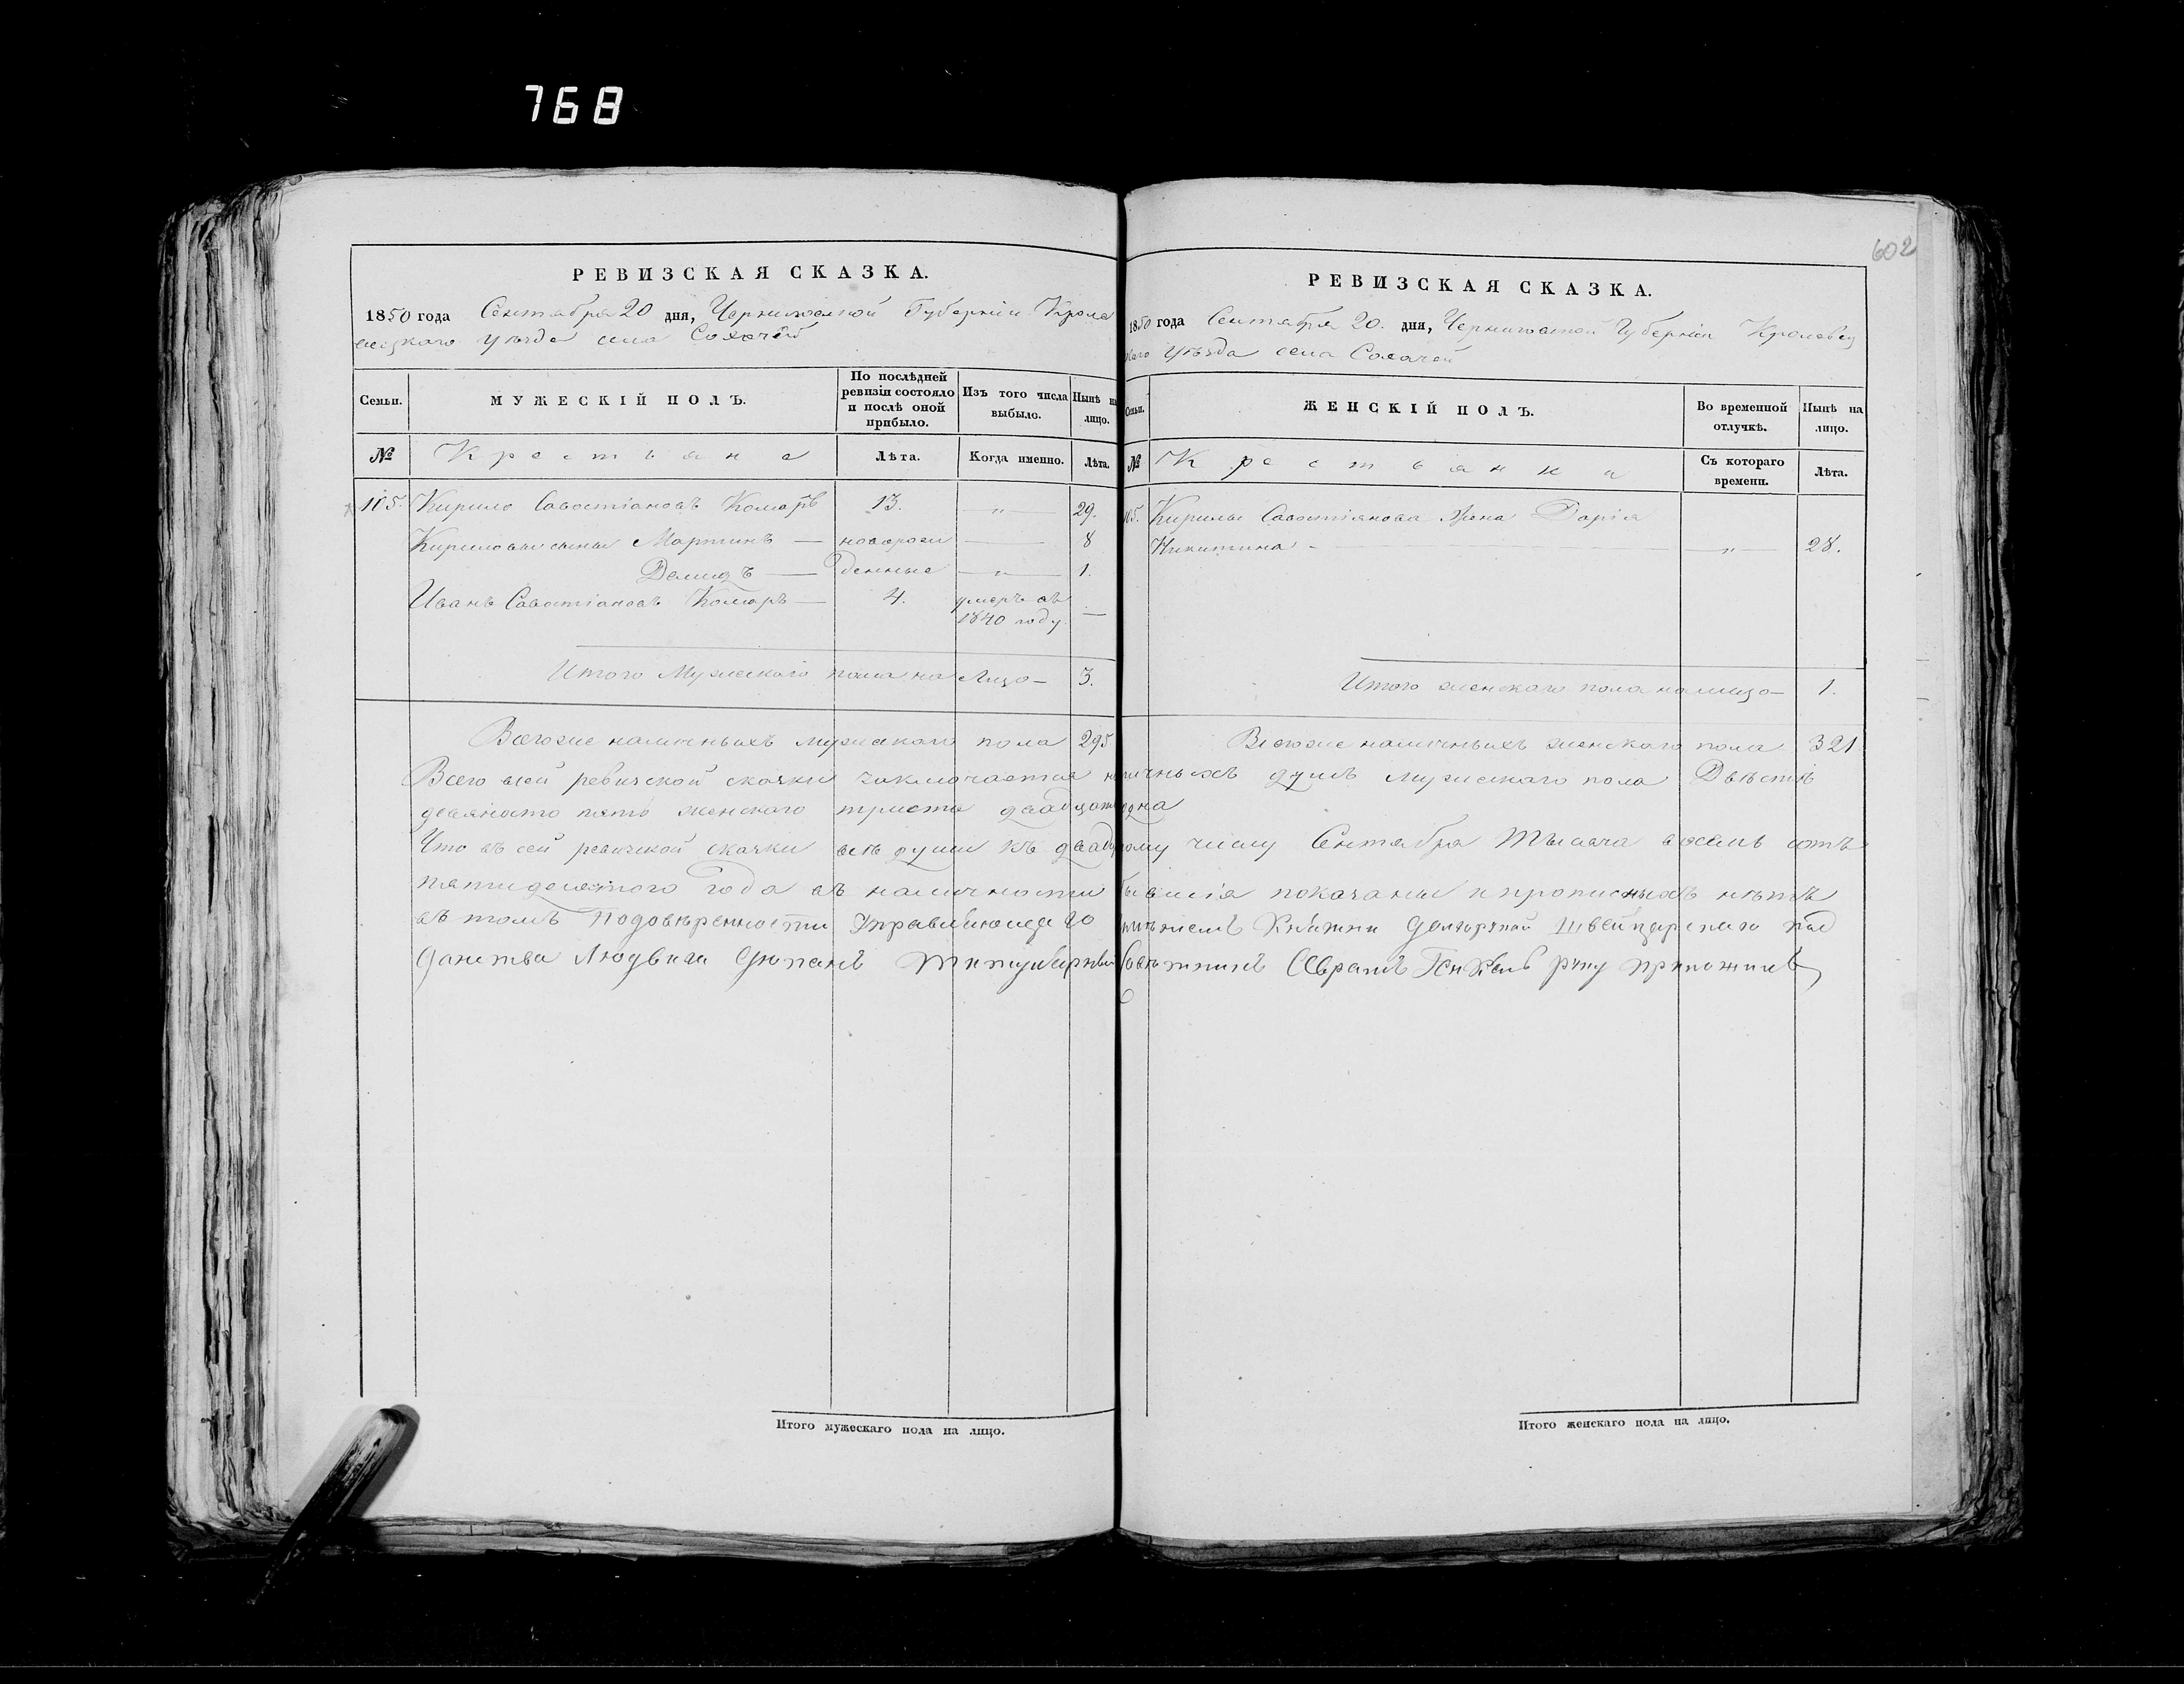 768
602
РЕВИЗСКАЯ СКАЗКА.
1850 года Сентября 20 дня, Черниговской Губернiи Кроле
вецкаго уѣзда села Собычей
Семьи.
МУЖЕСКІЙ ПОЛЪ.
По послѣдней
ревизіи состояло
и послѣ оной
прибыло.
Изъ того числа
выбыло.
Нынѣ на
лицо.
№
Крестьяне
Лѣта.
Когда именно.
Лѣта.
105. Кирило Савостіановъ Комаръ 13. „ 29.
Кириловы сыны Мартинъ — новорож — 8
Демидъ — денные „ 1.
Иванъ Савостіановъ Комаръ — 4. умеръ въ —
1840 году
Итого Мужескаго пола на Лицо — 3.
Всего же наличныхъ мужескаго пола 295.
РЕВИЗСКАЯ СКАЗКА.
1850 года Сентября 20. дня, Черниговской Губерніи Кролевец
каго уѣзда села
Семьи.
ЖЕНСКІЙ ПОЛЪ.
Во временной
отлучкѣ.
Нынѣ на
лицо.
№
Крестьянки
Съ котораго
времени.
Лѣта.
105. Кирилы Савостіянова Жена Дарія
Никитина - „ 28.
Итого женскаго пола на лицо — 1.
Всего же наличныхъ женскаго пола 321.
Всего въ сей ревизской сказки заключается наличныхъ душъ мужескаго пола Двѣсти
девяносто пять женскаго триста двадцать одна
Что въ сей ревизской сказки всѣ души къ двадцатому числу Сентября тысяча восемь сотъ
пятидесятого года въ наличности бывшія показаны и прописныхъ нѣтъ
въ томъ По довѣренности Управляющаго имѣніемъ Княжни Долгорукой Швейцарскаго под
данства Людвига Титулярный Совѣтникъ руку приложилъ
Итого мужескаго пола на лицо.
Итого женскаго пола на лицо.